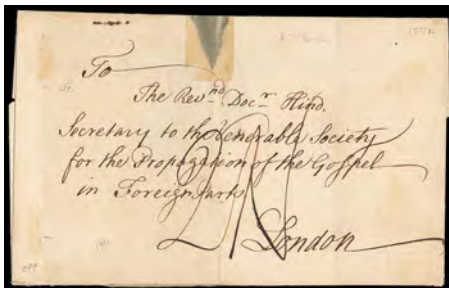 To
The Revnd Docr Hind.
Secretary to the Venerable Society
for the Propagation of the Gospel
in Foreign Parts
London